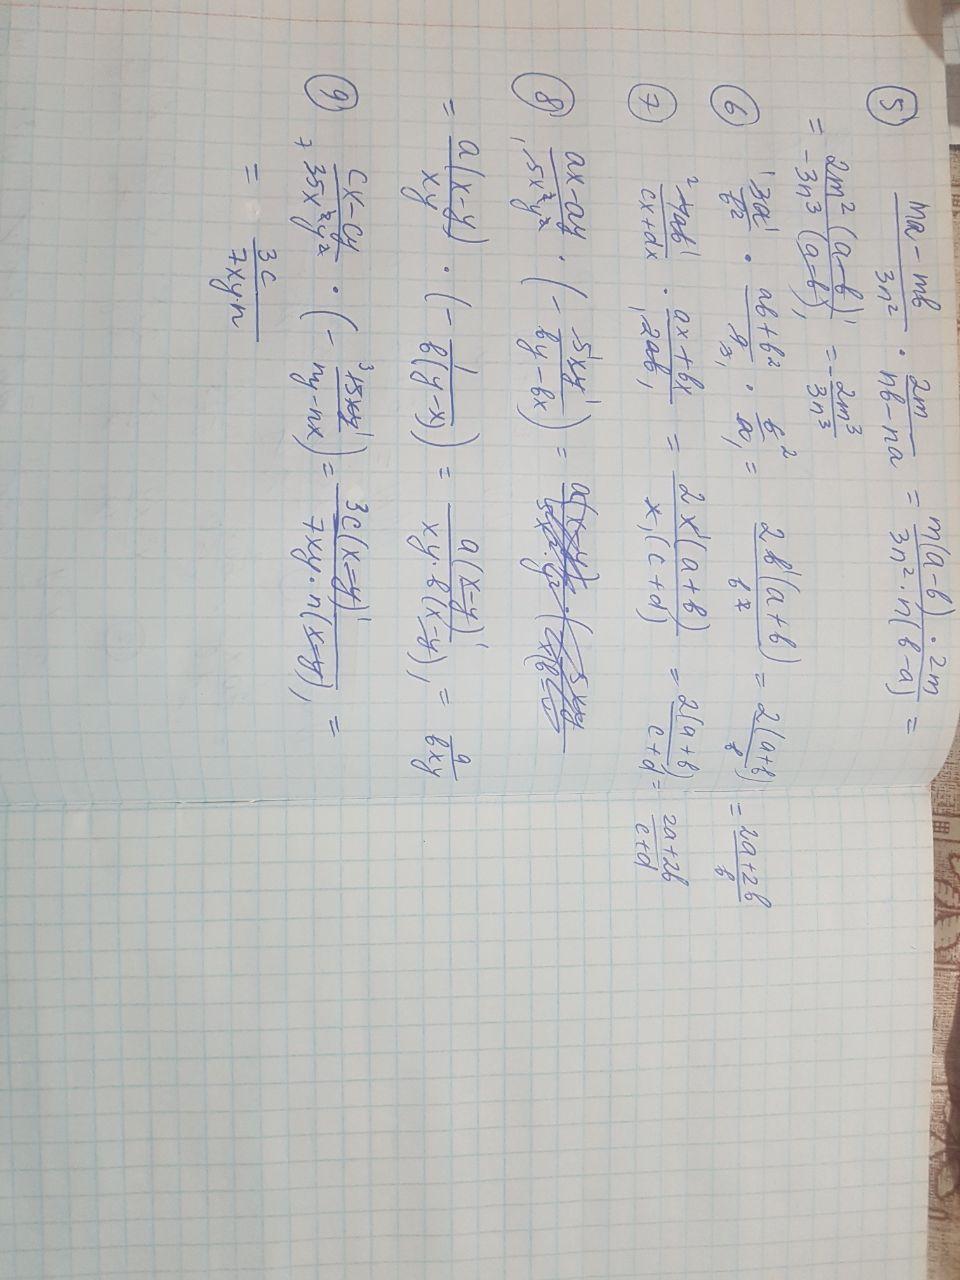 5) (ma - mb)/(3n²) · 2m/(nb - na) = (m(a-b) · 2m)/(3n² · n(b-a)) =
= (2m²(a-b))/(-3n³(a-b)) = - 2m³/3n³
6) 3a/b² · (ab + b²)/9 · 6/a = (2b(a+b))/b² = (2(a+b))/b = (2a+2b)/b
7) 4ab/(cx+dx) · (ax+bx)/2ab = (2x(a+b))/(x(c+d)) = (2(a+b))/(c+d) = (2a+2b)/(c+d)
8) (ax-ay)/(5x²y²) · (- 5xy/(by-bx)) =
= (a(x-y))/xy · (- 1/(b(y-x))) = (a(x-y))/(xy·b(x-y)) = a/bxy
9) (cx-cy)/(35x²y²) · (- 15xy/(ny-nx)) = (3c(x-y))/(7xy·n(x-y)) =
= 3c/7xyn